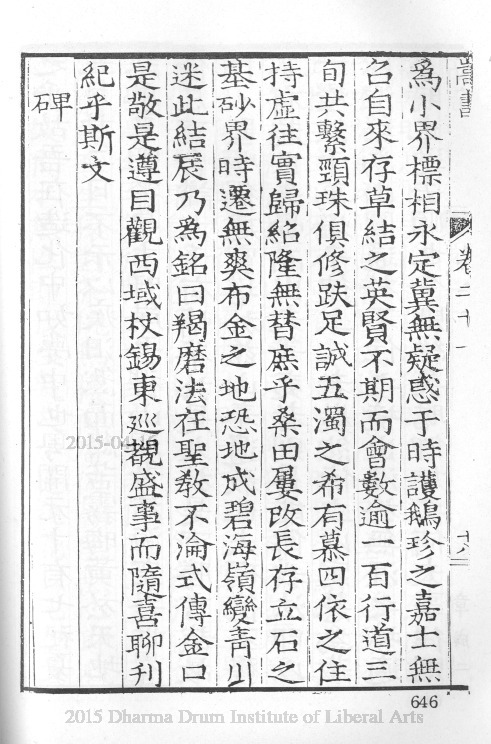 嵩書
卷二十一
十八
為小界標相永定冀無疑惑于時護鵝珍之嘉士無
召自來存草結之英賢不期而會數逾一百行道三
旬共繫頸珠俱修趺足誠五濁之希有慕四依之住
持虛往實歸紹隆無替庶乎桑田屢改長存立石之
基砂界時遷無爽布金之地恐地成碧海嶺變青川
迷此結展乃為銘曰羯磨法在聖教不淪式傳金口
是敬是遵目觀西域杖錫東巡覩盛事而隨喜聊刊
紀乎斯文
碑
646
2015 Dharma Drum Institute of Liberal Arts